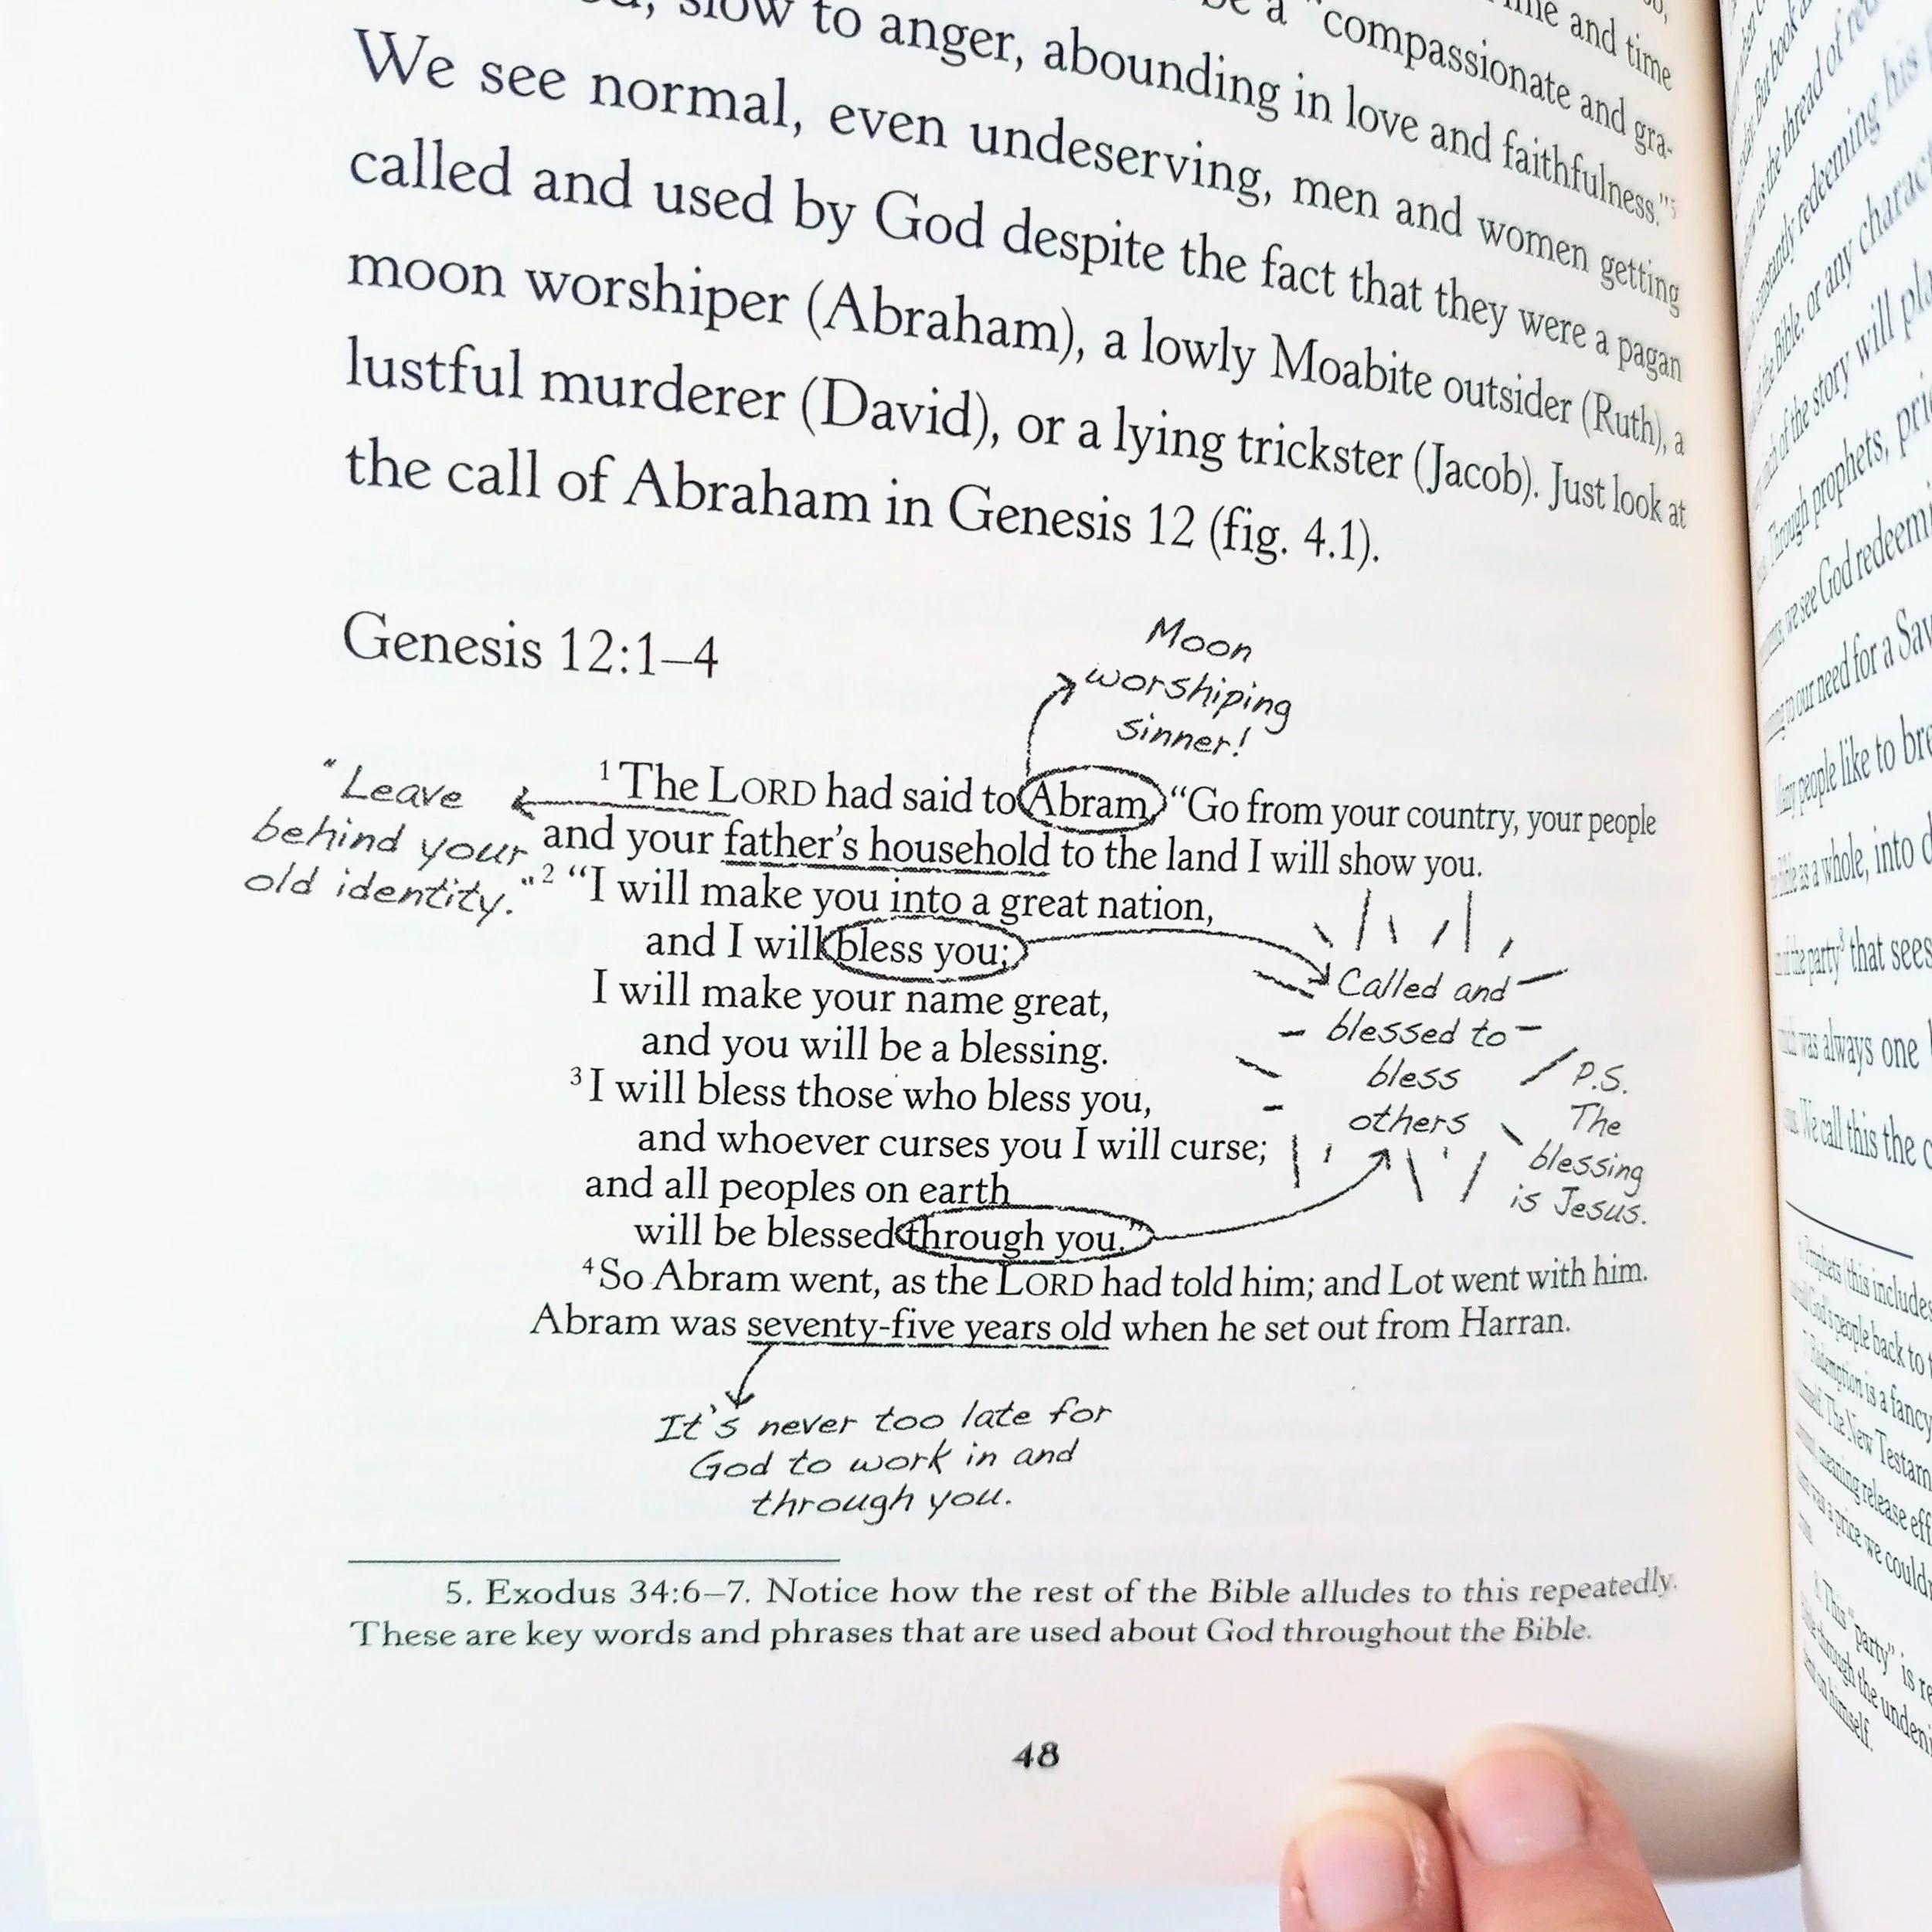 slow to anger, abounding in love and faithfulness."5
be a "compassionate and gra-
and time
We see normal, even undeserving, men and women getting
called and used by God despite the fact that they were a pagan
moon worshiper (Abraham), a lowly Moabite outsider (Ruth), a
lustful murderer (David), or a lying trickster (Jacob). Just look at
the call of Abraham in Genesis 12 (fig. 4.1).
Genesis 12:1–4
Moon
worshiping
sinner!
"Leave
behind your
old identity."
1 The LORD had said to Abram, "Go from your country, your people
and your father's household to the land I will show you.
2 "I will make you into a great nation,
and I will bless you;
I will make your name great,
and you will be a blessing.
3 I will bless those who bless you,
and whoever curses you I will curse;
and all peoples on earth
will be blessed through you."
Called and
blessed to
bless
others
P.S.
The
blessing
is Jesus.
4 So Abram went, as the LORD had told him; and Lot went with him.
Abram was seventy-five years old when he set out from Harran.
It's never too late for
God to work in and
through you.
5. Exodus 34:6–7. Notice how the rest of the Bible alludes to this repeatedly.
These are key words and phrases that are used about God throughout the Bible.
48
the thread of
constantly redeeming his
the Bible, or any charac
of the story will pla
Through prophets, pri
we see God redeemi
to our need for a Sav
people like to bre
as a whole, into d
the party8 that sees
was always one
We call this the c
(this includes
God's people back to
Redemption is a fancy
The New Testam
meaning release eff
was a price we could
8. This "party" is re
through the undeni
himself.